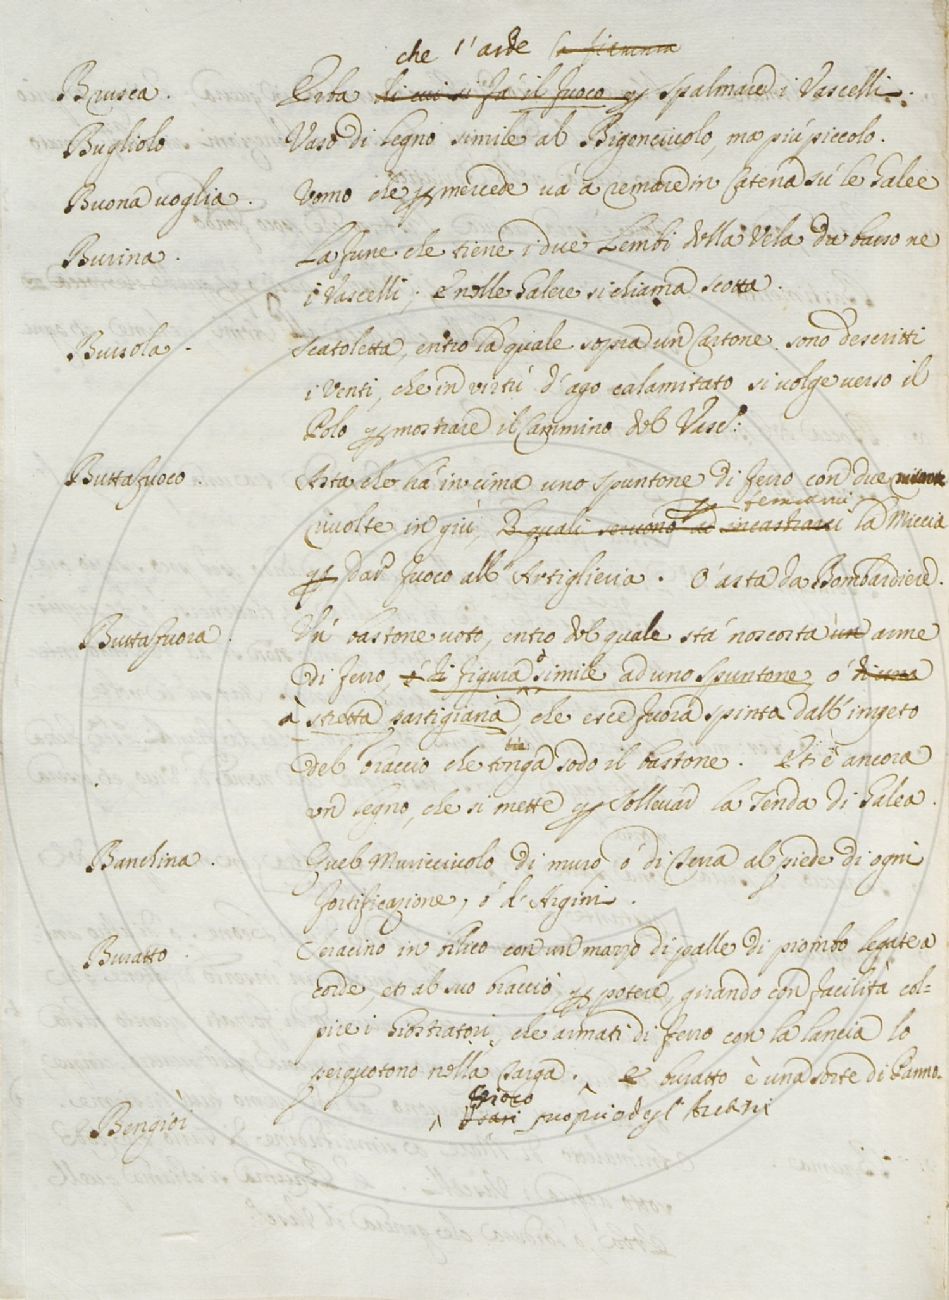 che l'arde
Brusca. Erba di cui si fà il fuoco per spalmare i Vascelli.
Bugliolo Vaso di legno simile al Bigonciuolo, ma più piccolo.
Buona voglia. Uomo che per mercede và à remare in Catena sù le Galee
Burina. La fune che tiene i due Lembi della Vela da basso ne
i Vascelli; e nelle Galere si chiama Scotta.
Bussola. Scatoletta, entro la quale sopra un Cartone sono descritti
i Venti, che in virtù d'ago calamitato si volge verso il
Polo per mostrare il Cammino del Vasc.:
Buttafuoco. Asta che hà in cima uno spuntone di ferro con due
rivolte in giù, le quali servono ad incastrarci la Miccia
per dar fuoco all'Artiglieria. O' asta da Bombardiere.
Buttafuora. Un bastone voto, entro del quale stà nascosta un arme
di ferro, è di figura ò simile ad uno spuntone, ò di una
à stretta partigiana che esce fuora spinta dall'impeto
del braccio che tenga sodo il bastone. Et è ancora
un legno, che si mette per sollevar la Tenda di Galea.
Banchina Quel Muricciuolo di muro ò di Terra al piede di ogni
fortificazione, ò d'Argini.
Buratto. Saracino in bilico con un mazzo di palle di piombo legate a
corde, et al suo braccio per potere, girando con facilità col-
pire i Giostratori, che armati di ferro con la lancia lo
perquotono nella Targa. e buratto è una sorte di Panno.
Giuoco
Bengiot Usasi proprio degl'